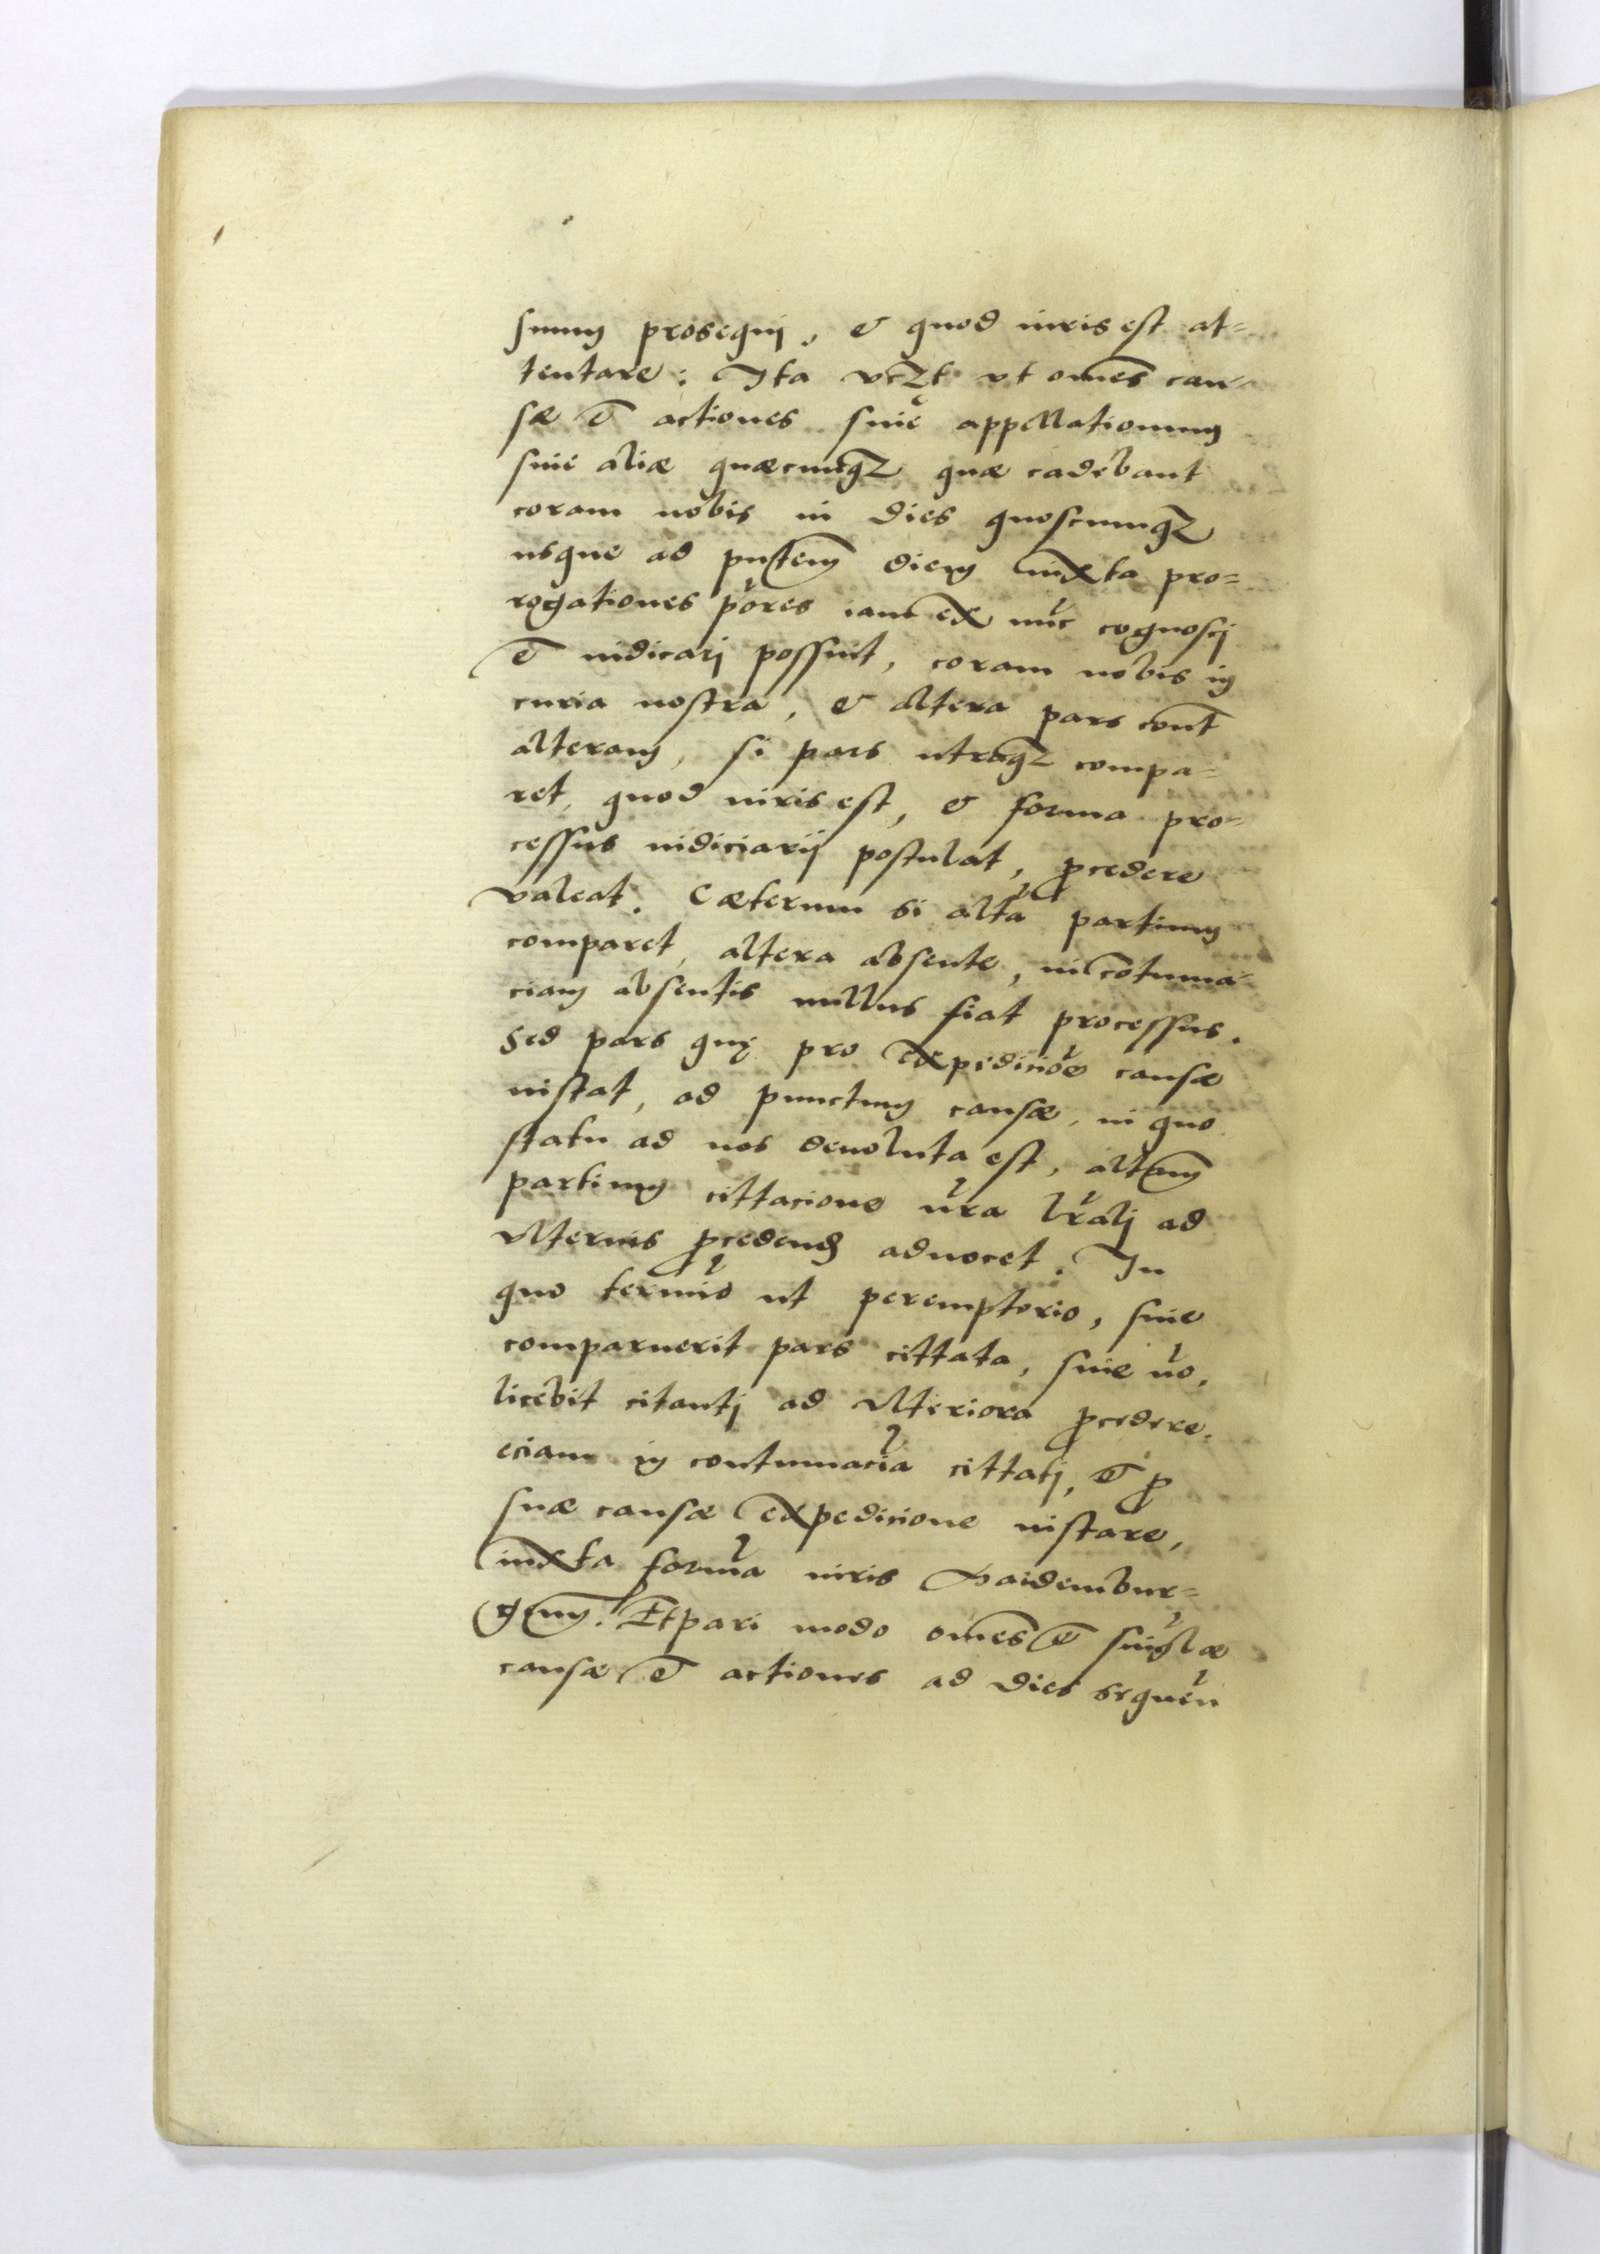 suum prosequi, & quod iuris est at=
tentare: Ita vczt vt om̃es cau-
sæ et actiones siue appellationum
siue aliæ quæcunqz quæ cadebant
coram nobis in dies quoscumqz
usque ad pn̄tem diem iuxta pro=
rogationes p̃ores iam ex nu̇c cognosci
et iudicari possint, coram nobis in
curia nostra, & altera pars cont̄
alteram, si pars utraqz compa=
ret, quod iuris est, & forma pro=
cessus iudiciarij postulat, ꝓcedere
valeat. Cæterum si alt̃a partium
comparet, altera absente, in cōtuma-
ciam absentis nullus fiat processus.
Sed pars quę pro expedicio̅e causæ
instat, ad punctum causæ, in quo
statu ad nos deuoluta est, alt̃am
partium cittacione n̅ra l̅rali ad
vlterius ꝓcedend aduocet. In
quo termi̅o ut peremptorio, siue
comparuerit pars cittata, siue no̅,
licebit citanti ad vlteriora ꝓcedere.
eciam in contumacia̅ cittati, et ꝓ
suæ causæ expedicione instare,
iuxta forma̅ iuris Maidembur=
gen̄. Et pari modo om̃es et singlæ
causæ et actiones ad dies sequen̅